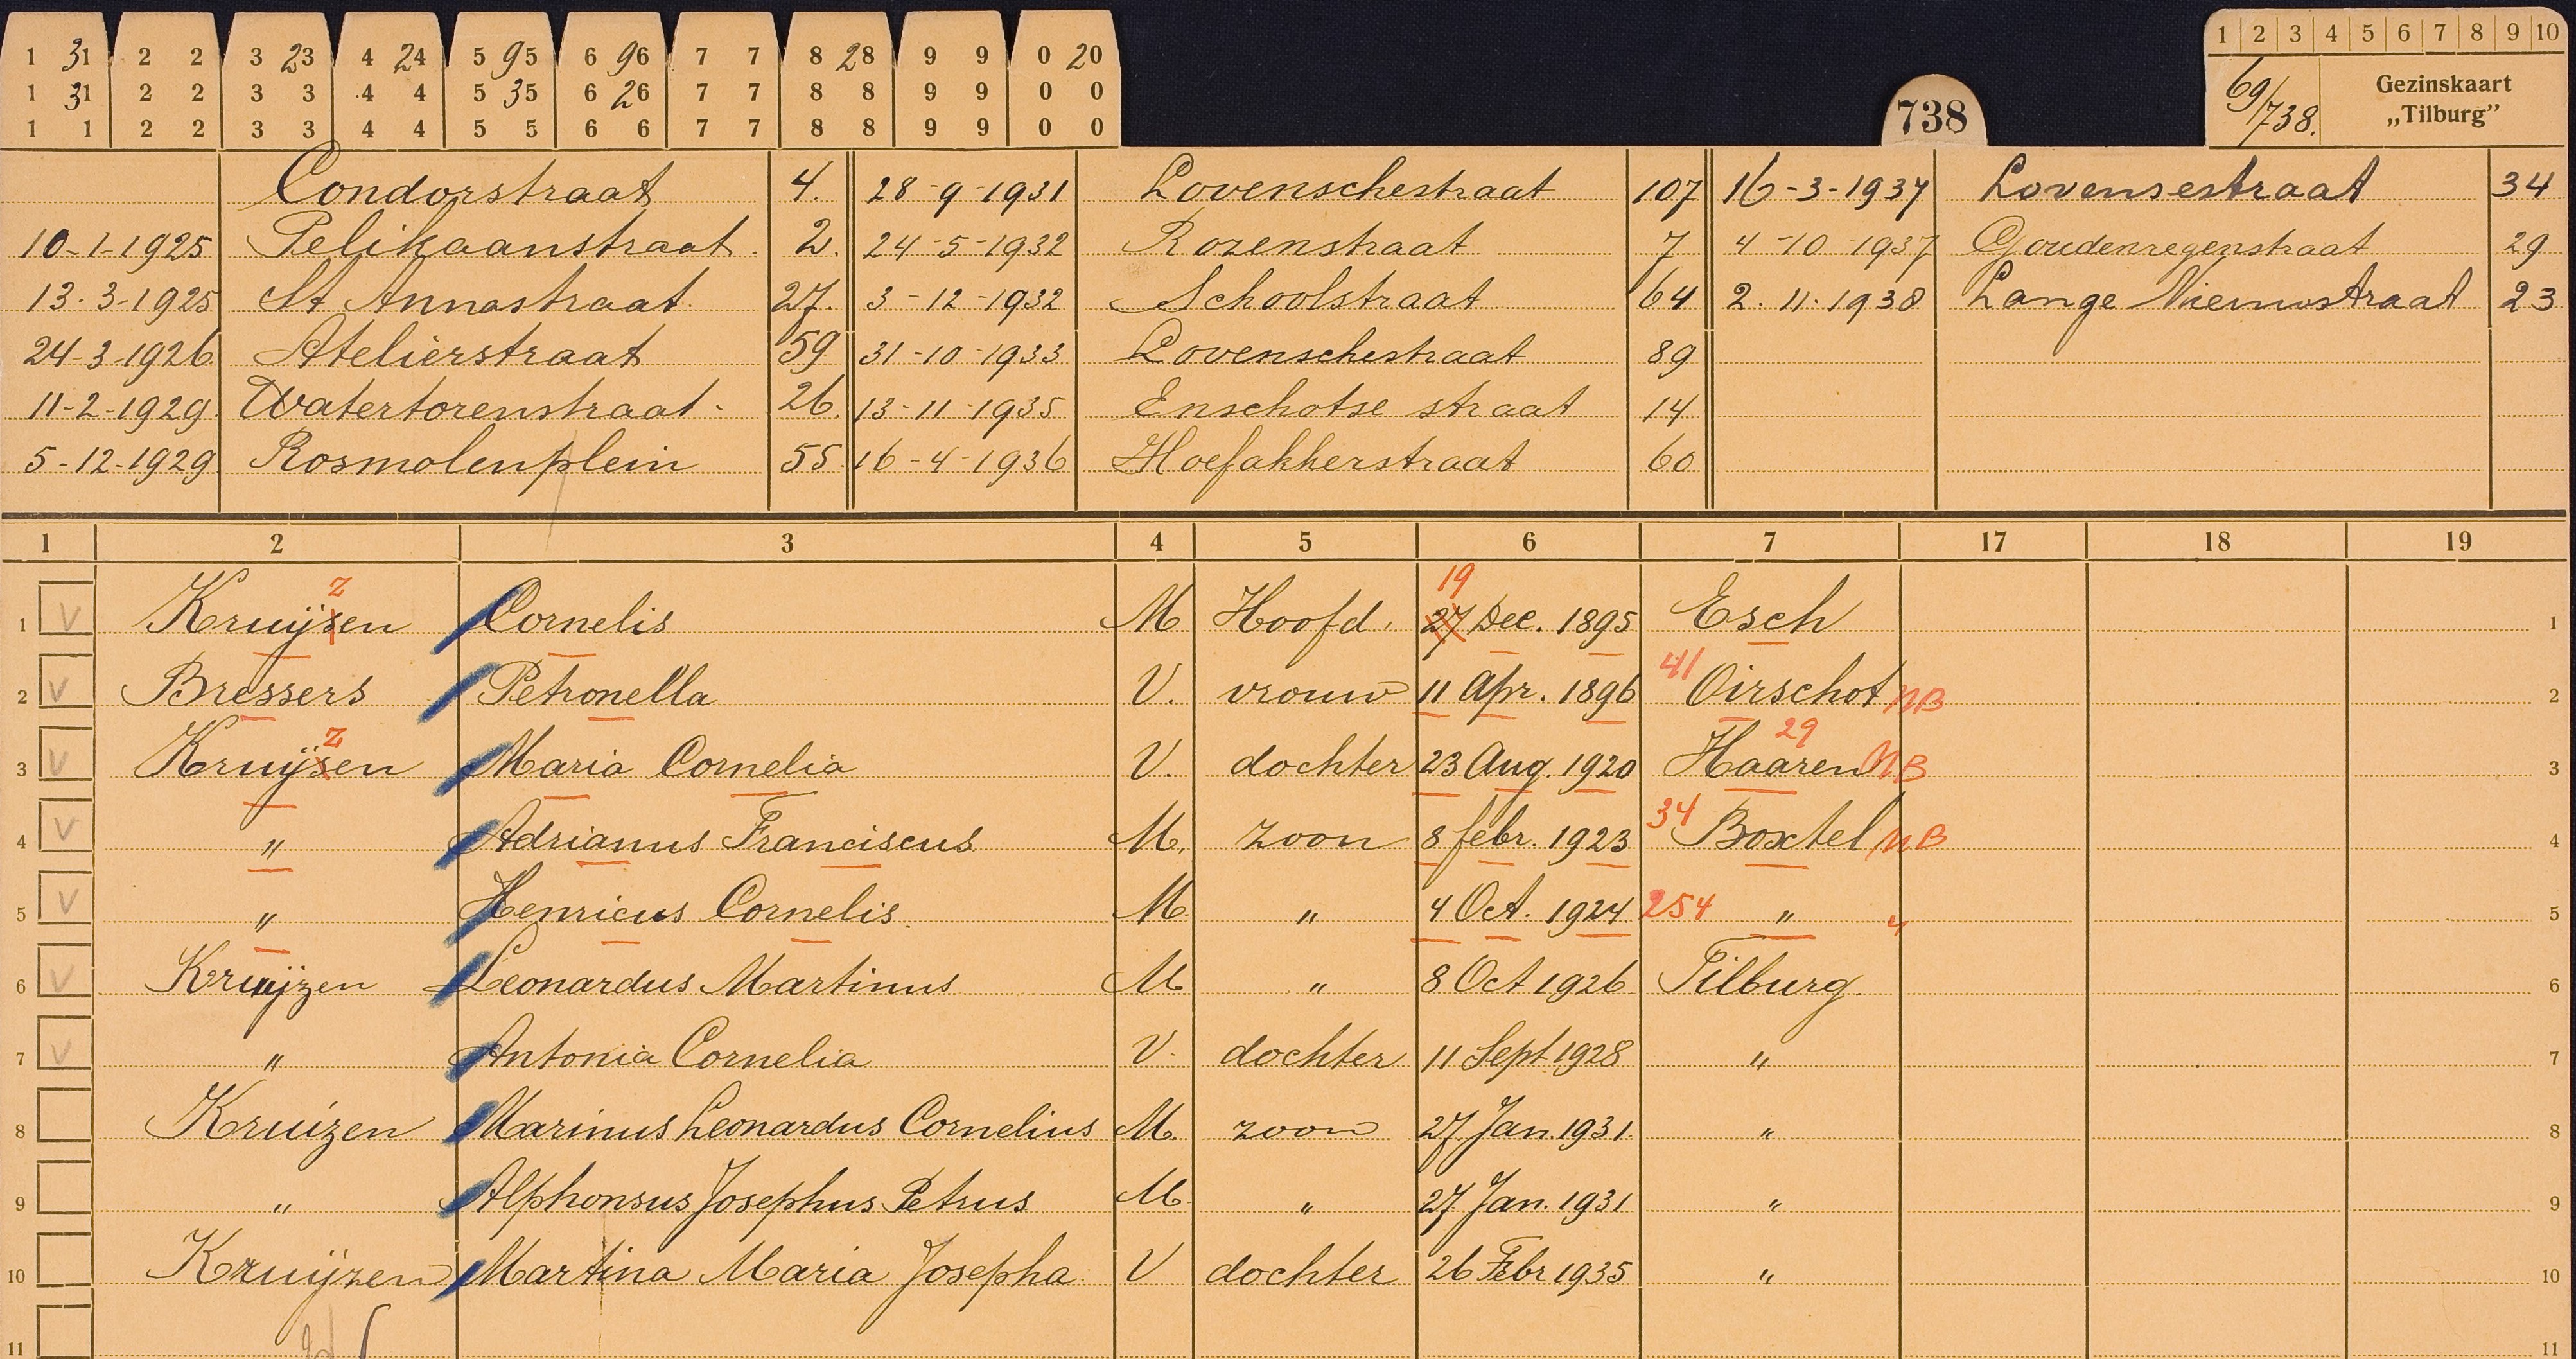 1 31 2 2 3 23 4 24 5 95 6 96 7 7 8 28 9 9 0 20
1 31 2 2 3 3 4 4 5 35 6 26 7 7 8 8 9 9 0 0
1 1 2 2 3 3 4 4 5 5 6 6 7 7 8 8 9 9 0 0
738
1 2 3 4 5 6 7 8 9 10
69/738.
Gezinskaart
„Tilburg”
Condorstraat 4. 28-9-1931 Lovenschestraat 107 16-3-1937 Lovensestraat 34
10-1-1925 Pelikaanstraat. 2. 24-5-1932 Rozenstraat 7 4-10-1937 Goudenregenstraat 29
13-3-1925 St Annastraat 27. 3-12-1932 Schoolstraat 64 2.11.1938 Lange Nieuwstraat 23
24-3-1926 Atelierstraat 59 31-10-1933 Lovenschestraat 89
11-2-1929 Watertorenstraat. 26. 13-11-1935 Enschotse straat 14
5-12-1929 Rosmolenplein 55 16-4-1936 Hoefakkerstraat 60
1 2 3 4 5 6 7 17 18 19
z 19
1 V Kruijsen Cornelis M Hoofd. 27 Dec. 1895 Esch 1
2 V Bressers Petronella V. vrouw 11 Apr. 1896 41 Oirschot NB 2
z 29
3 V Kruijsen Maria Cornelia V. dochter 23 Aug. 1920 Haaren NB 3
4 V „ Adrianus Franciscus M. zoon 8 febr. 1923 34 Boxtel NB 4
5 V „ Henricus Cornelis. M. „ 4 Oct. 1924 254 „ „ 5
6 V Kruijzen Leonardus Martinus M „ 8 Oct 1926 Tilburg. 6
7 V „ Antonia Cornelia V. dochter 11 Sept 1928 „ 7
8 Kruizen Marinus Leonardus Cornelius M. zoon 27 Jan. 1931. „ 8
9 „ Alphonsus Josephus Petrus M. „ 27 Jan. 1931 „ 9
10 Kruijzen Martina Maria Josepha V dochter 26 Febr 1935 „ 10
11 11